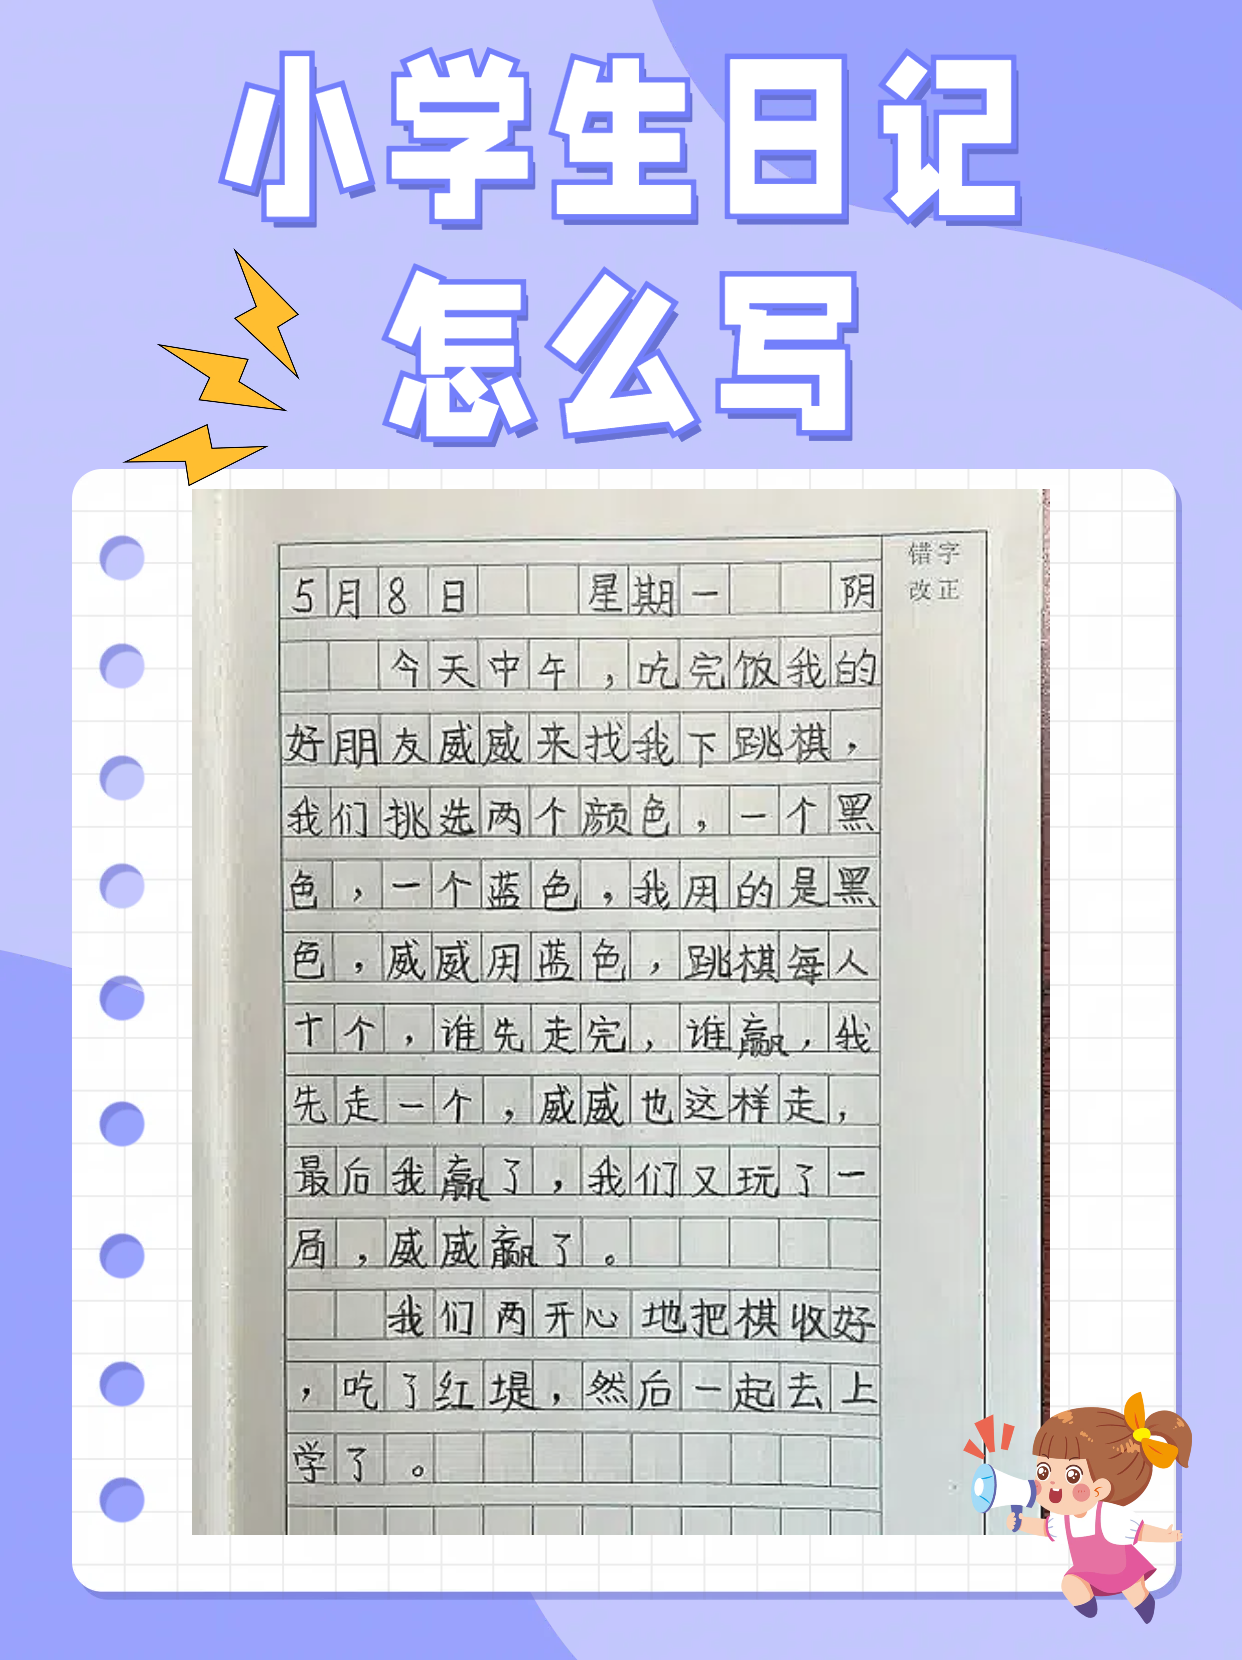 小学生日记
怎么写
错字
改正
5月8日 星期一 阴
今天中午,吃完饭我的
好朋友威威来找我下跳棋,
我们挑选两个颜色,一个黑
色,一个蓝色,我用的是黑
色,威威用蓝色,跳棋每人
十个,谁先走完,谁赢,我
先走一个,威威也这样走,
最后我赢了,我们又玩了一
局,威威赢了。
我们两开心地把棋收好
,吃了红堤,然后一起去上
学了。